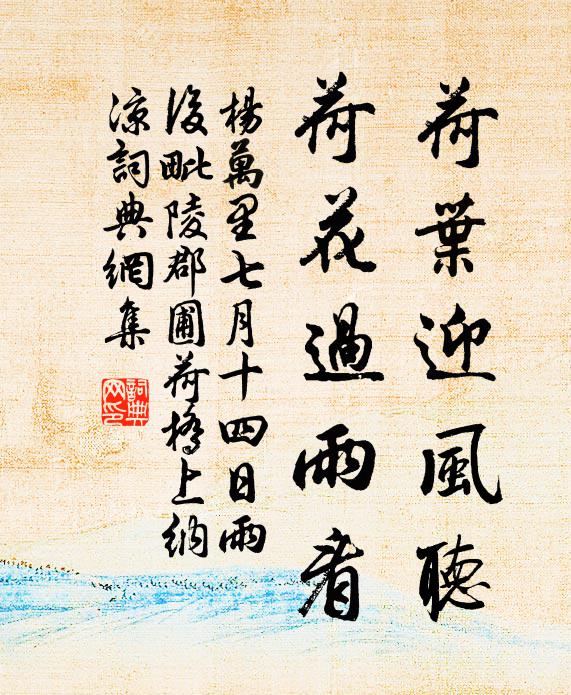 荷葉迎風聽
荷花過雨看
楊萬里七月十四日雨
後毗陵郡圃荷橋上納
涼詞典網集
詞典
网印